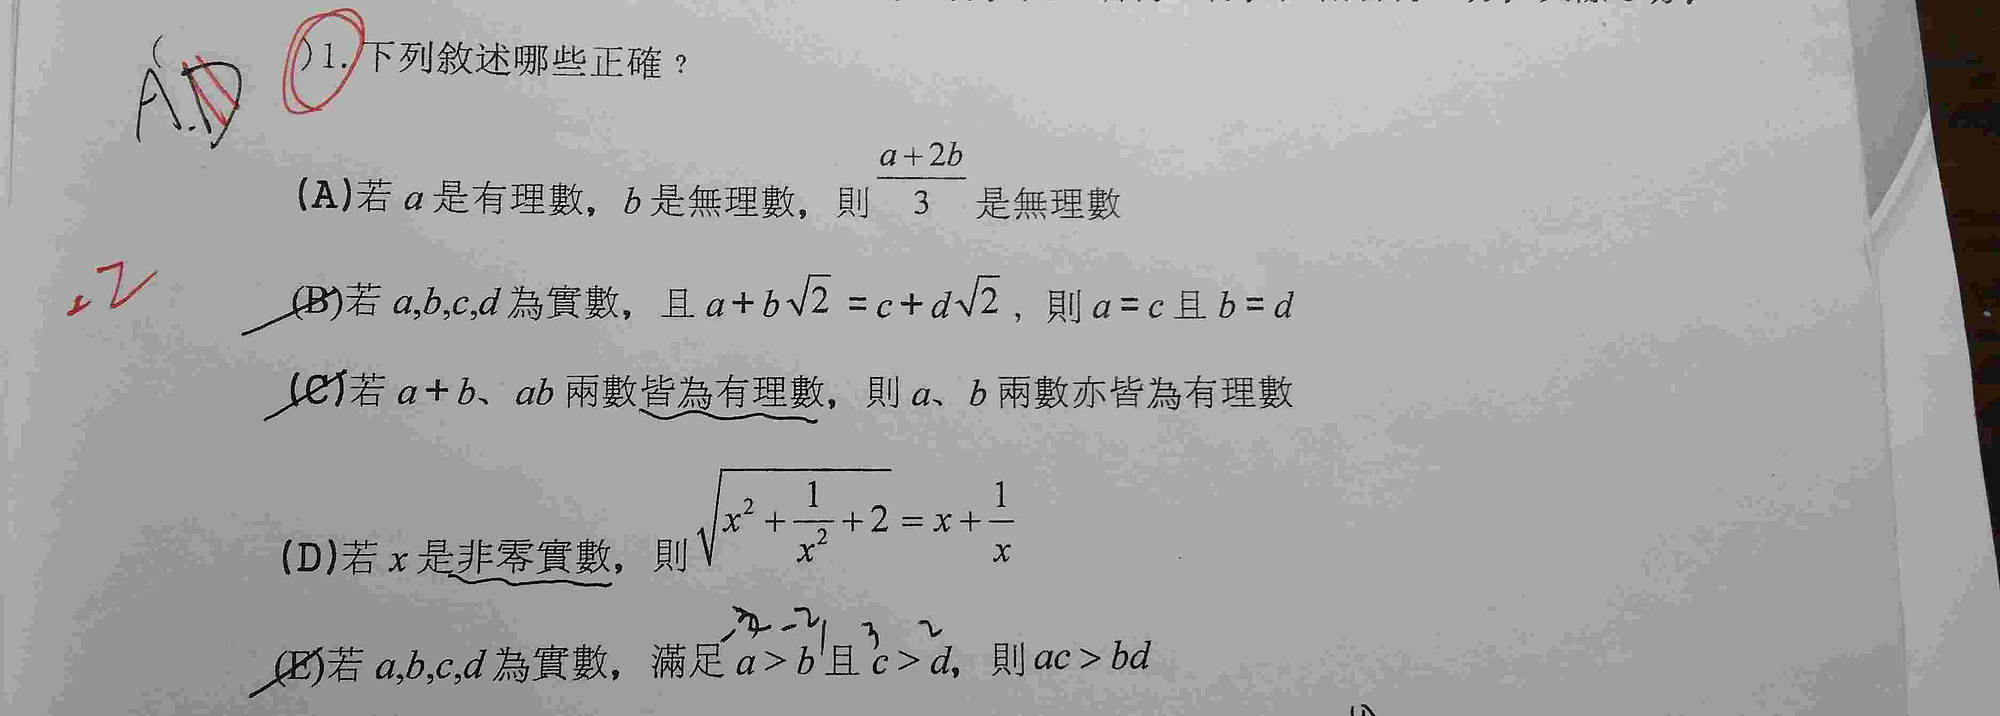 A.D
)1. 下列敘述哪些正確？
(A)若 a 是有理數，b 是無理數，則 \frac{a+2b}{3} 是無理數
-2
(B)若 a,b,c,d 為實數，且 a+b√2 =c+d√2，則 a=c 且 b=d
(C)若 a+b、ab 兩數皆為有理數，則 a、b 兩數亦皆為有理數
(D)若 x 是非零實數，則 \sqrt{x^2+\frac{1}{x^2}+2}=x+\frac{1}{x}
-2 3 2
(E)若 a,b,c,d 為實數，滿足 a>b 且 c>d，則 ac>bd